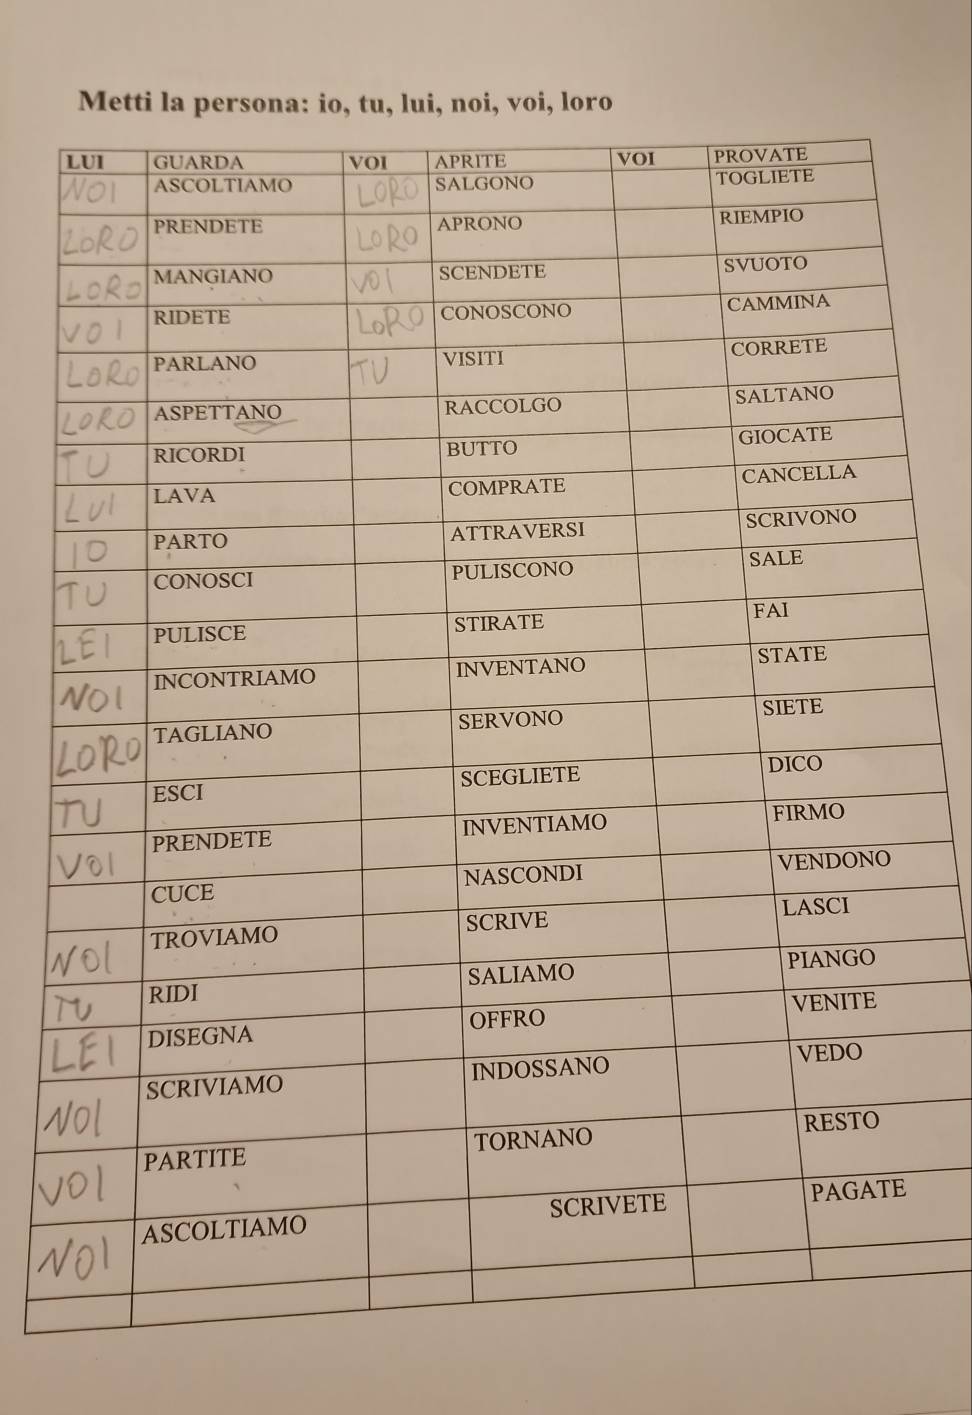 Metti la persona: io, tu, lui, noi, voi, loro
LUI GUARDA VOI APRITE VOI PROVATE
NOI ASCOLTIAMO LORO SALGONO TOGLIETE
LORO PRENDETE LORO APRONO RIEMPIO
LORO MANGIANO VOI SCENDETE SVUOTO
VOI RIDETE LORO CONOSCONO CAMMINA
LORO PARLANO TU VISITI CORRETE
LORO ASPETTANO RACCOLGO SALTANO
TU RICORDI BUTTO GIOCATE
LUI LAVA COMPRATE CANCELLA
IO PARTO ATTRAVERSI SCRIVONO
TU CONOSCI PULISCONO SALE
LEI PULISCE STIRATE FAI
NOI INCONTRIAMO INVENTANO STATE
LORO TAGLIANO SERVONO SIETE
TU ESCI SCEGLIETE DICO
VOI PRENDETE INVENTIAMO FIRMO
CUCE NASCONDI VENDONO
NOI TROVIAMO SCRIVE LASCI
TU RIDI SALIAMO PIANGO
LEI DISEGNA OFFRO VENITE
NOI SCRIVIAMO INDOSSANO VEDO
VOI PARTITE TORNANO RESTO
NOI ASCOLTIAMO SCRIVETE PAGATE